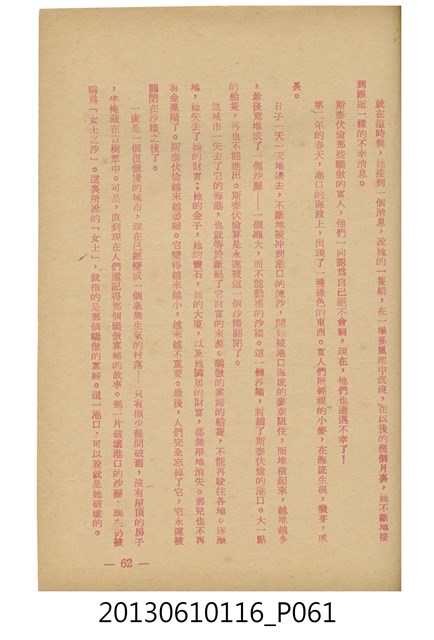 就在這時候，她接到一個消息，說她的一隻船，在一場暴風雨中沉沒，在以後的幾個月裏，她不斷地接
到跟這一樣的不幸消息。
斯泰伏倫那些驕傲的富人，他們一向認爲自己絕不會窮，現在，他們也遭遇不幸了！
第二年的春天，港口的海波上，出現了一種綠色的東西。富人們所輕視的小麥，在海底生根，發芽，成
長。
日子一天一天地過去，不斷地被冲到港口的流沙，開始被港口海底的麥草阻住，而堆積起來，越堆越多
，最後竟堆成了一個沙灘——一個龐大，而不能動搖的沙牆。這一個沙牆，封鎖了斯泰伏倫的港口。大一點
的船隻，再也不能進出。斯泰伏倫算是永遠被這一個沙牆關閉了。
這城市一失去了它的海港，也就等於斷絕了它財富的來源。驕傲的富婦的船隻，不能再駛往各地。逐漸
地，她失去了她的財富；她的金子，她的寶石，她的大廈，以及她隣居的財富，都無形地消失。那兒也不再
有金製階了。斯泰伏倫越來越萎縮。它變得越來越小，越來越不重要。最後，人們完全忘掉了它，它永遠被
關閉在沙牆之後了。
一度是一個很傲慢的城市，現在已經變成一個毫無生氣的村落——只有很少幾間破舊，沒有屋頂的房子
，半掩藏在古樹叢中。可是，直到現在人們還記得那個驕傲富婦的故事。那一片破壞港口的沙灘，現仍被
稱爲「女士之沙」。這裏所說的「女士」，就指的是那個驕傲的富婦。這一港口，可以說就是她破壞的。
— 62 —
20130610116_P061